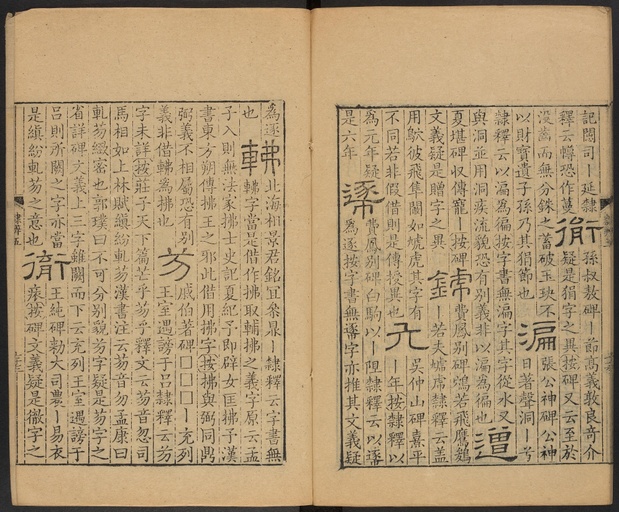 記闕司｜延隸
釋云轉恐作蔓衛孫叔敖碑｜前高義敦良奇介
沒齒而無分銖之蓄破玉玦不漏張公神碑公神
以財寶遺子孫乃其狷節也日著聲洞｜兮
隸釋云以漏為徧按字書無漏字其字從水又
與洞並用洞疾流貌恐有別義非以漏為徧也
夏堪碑収傳寵｜按碑費鳳別碑鴆若飛鷹鷂
文義疑是贈字之異若夫虓虎隸釋云蓋
用䶂彼飛隼闞如虓虎其字有
不同若非假借則是傳授異也吳仲山碑熹平
為元年疑費鳳別碑白駒以｜隸釋云以
是六年為逐按字書無字亦推其文義疑
為逐北海相景君銘冝枲｜隸釋云字書無
也字當是借作拂取輔拂之義字原云孟
子入則無法家拂士史記夏紀予即辟女匡拂予漢
書東方朔傳拂王之邪此借用拂字按拂與弼同
弼義不相屬恐有別戚伯著碑□□□｜充列
義非借為拂也王室遇謗于呂隸釋云芴
字未詳按莊子天下篇芒乎芴乎釋文云芴音忽司
馬相如上林賦縝紛軋芴漢書注云芴音勿孟康曰
軋芴緻密也郭璞曰不可分別貌芴字疑是芴字之
省詳碑文義上三字雖闕而下云充列王室遇謗于
呂則所闕之字亦當王純碑勑大司農｜易衣
是縝紛軋芴之意也按碑文義疑是徽字之